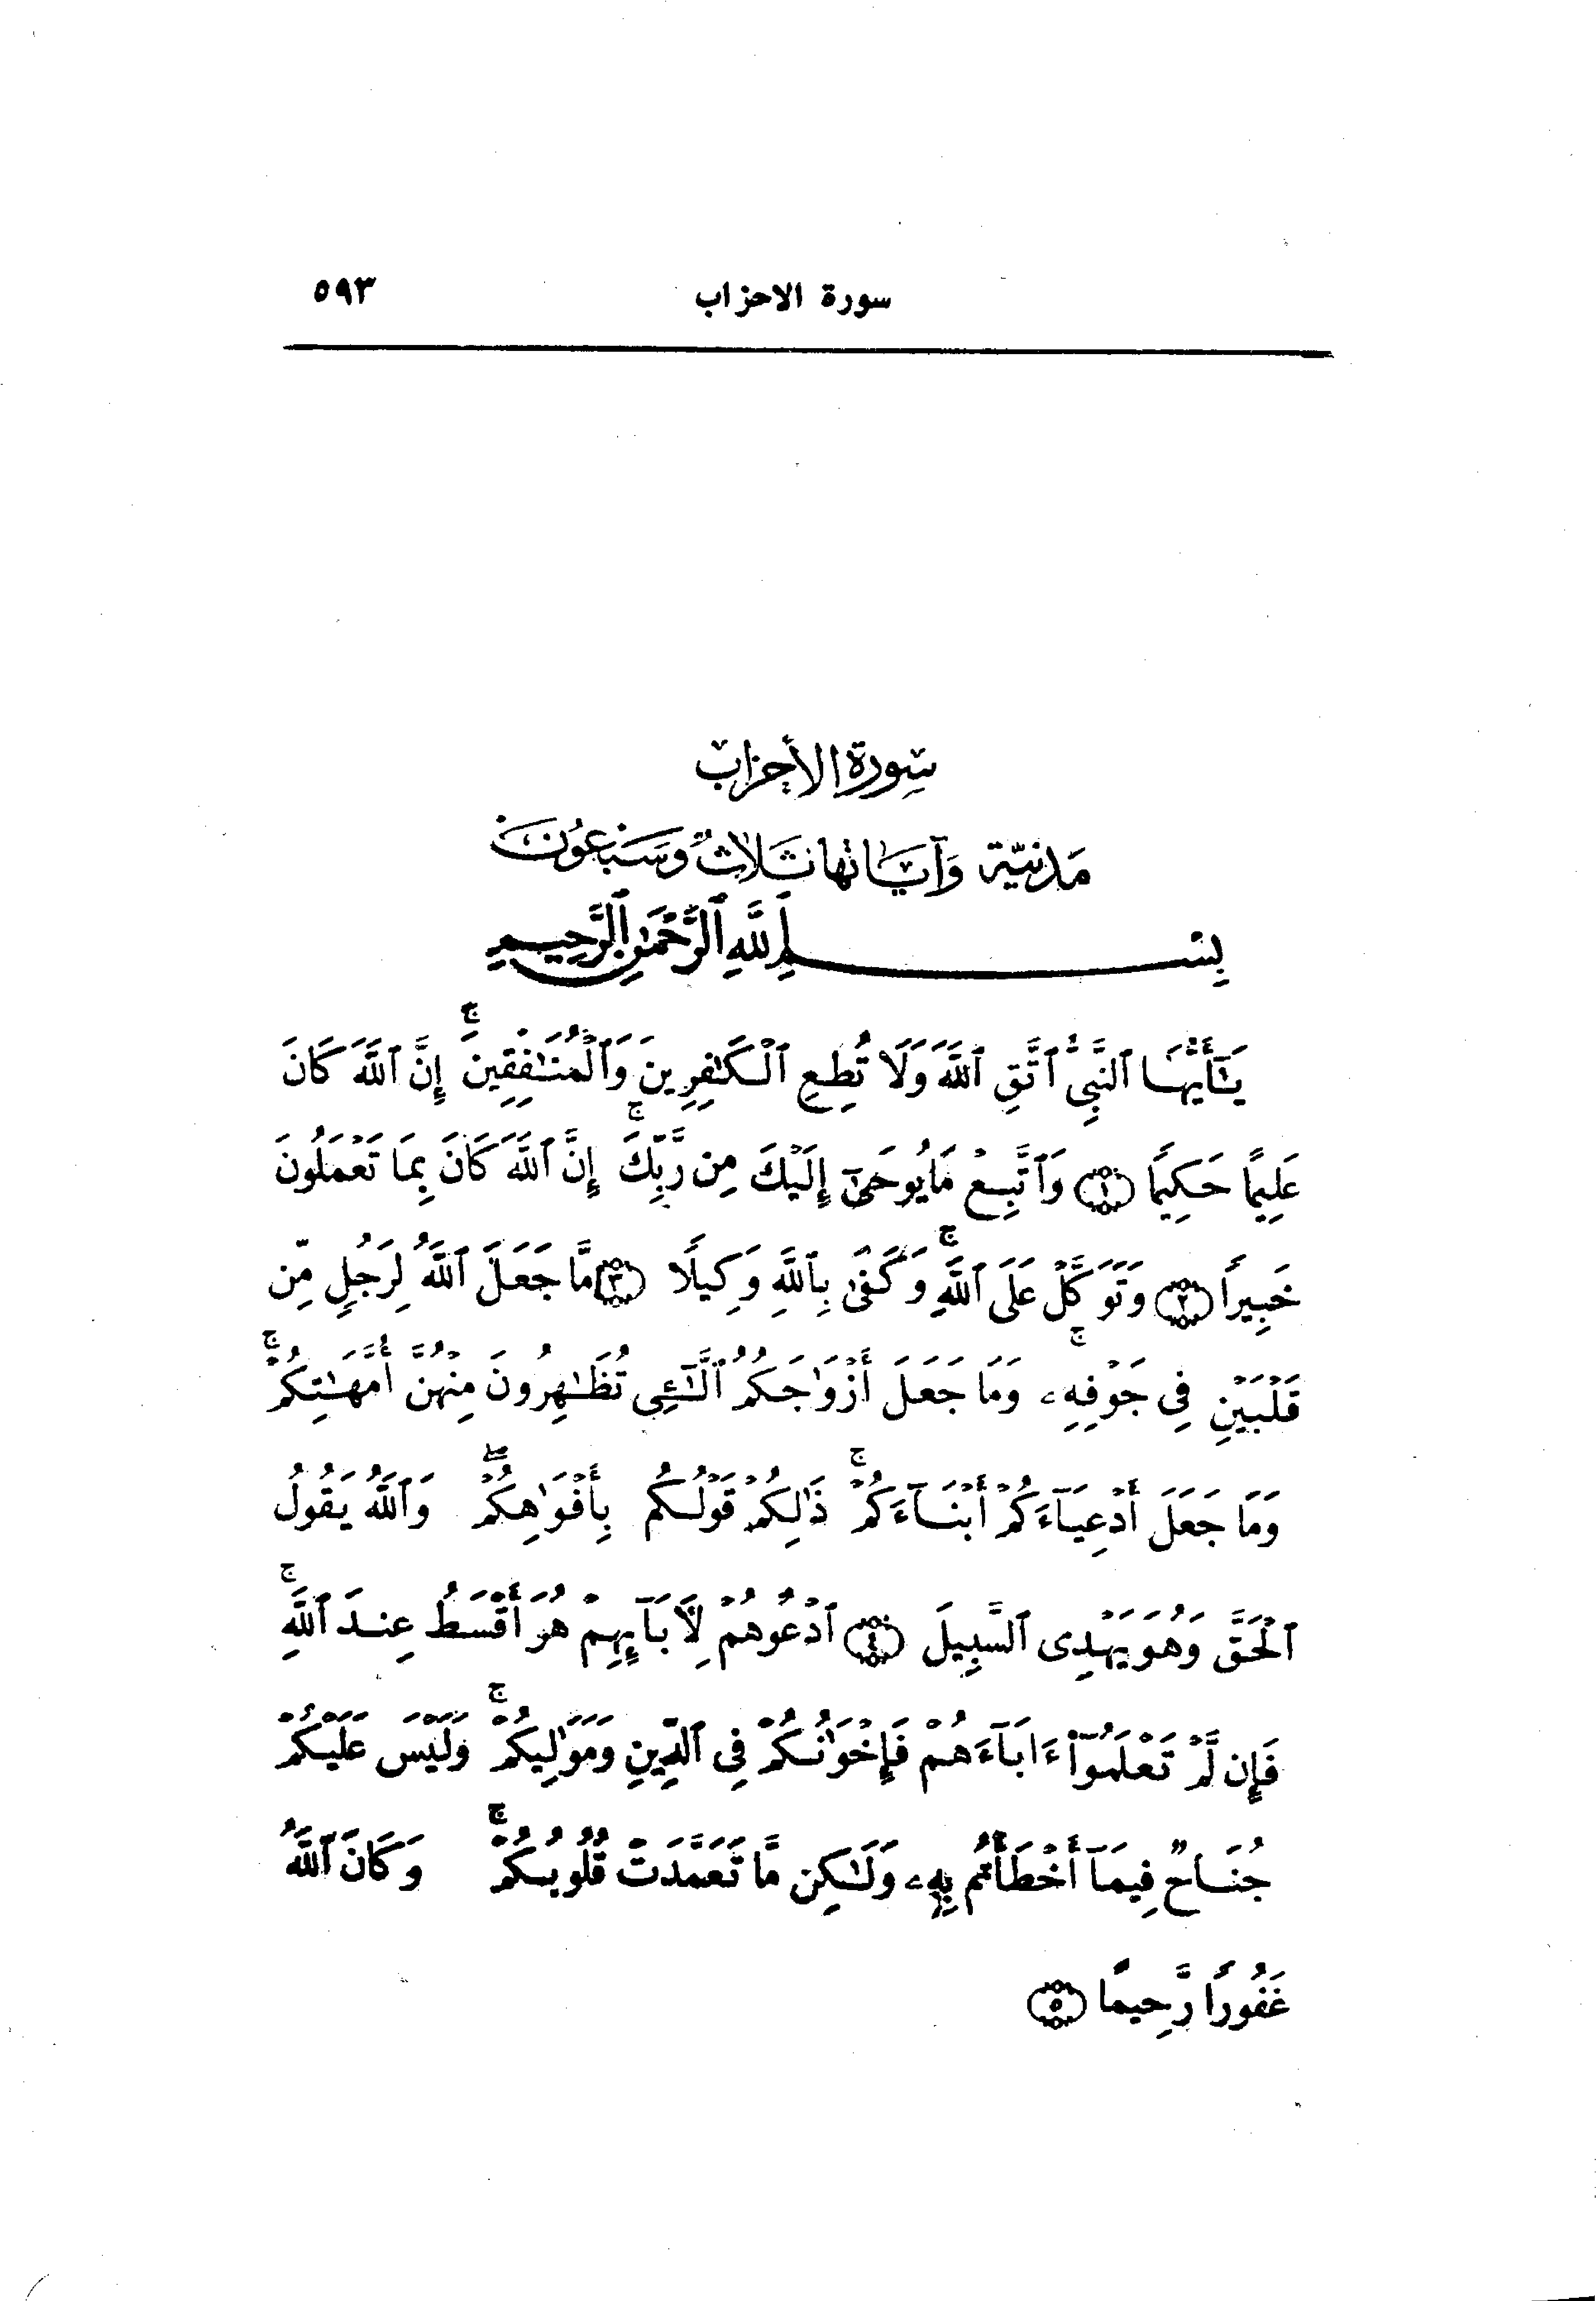 سورة الاحزاب ٥٩٣
سورة الأحزاب
مدنيّة وَآيَاتها ثَلاثٌ وسَبعُون
بِسْمِ ٱللَّهِ ٱلرَّحْمَٰنِ ٱلرَّحِيمِ
يَٰٓأَيُّهَا ٱلنَّبِىُّ ٱتَّقِ ٱللَّهَ وَلَا تُطِعِ ٱلْكَٰفِرِينَ وَٱلْمُنَٰفِقِينَ ۚ إِنَّ ٱللَّهَ كَانَ
عَلِيمًا حَكِيمًا ﴿١﴾ وَٱتَّبِعْ مَا يُوحَىٰٓ إِلَيْكَ مِن رَّبِّكَ ۚ إِنَّ ٱللَّهَ كَانَ بِمَا تَعْمَلُونَ
خَبِيرًا ﴿٢﴾ وَتَوَكَّلْ عَلَى ٱللَّهِ ۚ وَكَفَىٰ بِٱللَّهِ وَكِيلًا ﴿٣﴾ مَّا جَعَلَ ٱللَّهُ لِرَجُلٍ مِّن
قَلْبَيْنِ فِى جَوْفِهِۦ ۚ وَمَا جَعَلَ أَزْوَٰجَكُمُ ٱلَّٰٓـِٔى تُظَٰهِرُونَ مِنْهُنَّ أُمَّهَٰتِكُمْ ۚ
وَمَا جَعَلَ أَدْعِيَآءَكُمْ أَبْنَآءَكُمْ ۚ ذَٰلِكُمْ قَوْلُكُم بِأَفْوَٰهِكُمْ ۖ وَٱللَّهُ يَقُولُ
ٱلْحَقَّ وَهُوَ يَهْدِى ٱلسَّبِيلَ ﴿٤﴾ ٱدْعُوهُمْ لِأَبَآئِهِمْ هُوَ أَقْسَطُ عِندَ ٱللَّهِ ۚ
فَإِن لَّمْ تَعْلَمُوٓا۟ ءَابَآءَهُمْ فَإِخْوَٰنُكُمْ فِى ٱلدِّينِ وَمَوَٰلِيكُمْ ۚ وَلَيْسَ عَلَيْكُمْ
جُنَاحٌ فِيمَآ أَخْطَأْتُم بِهِۦ وَلَٰكِن مَّا تَعَمَّدَتْ قُلُوبُكُمْ ۚ وَكَانَ ٱللَّهُ
غَفُورًا رَّحِيمًا ﴿٥﴾